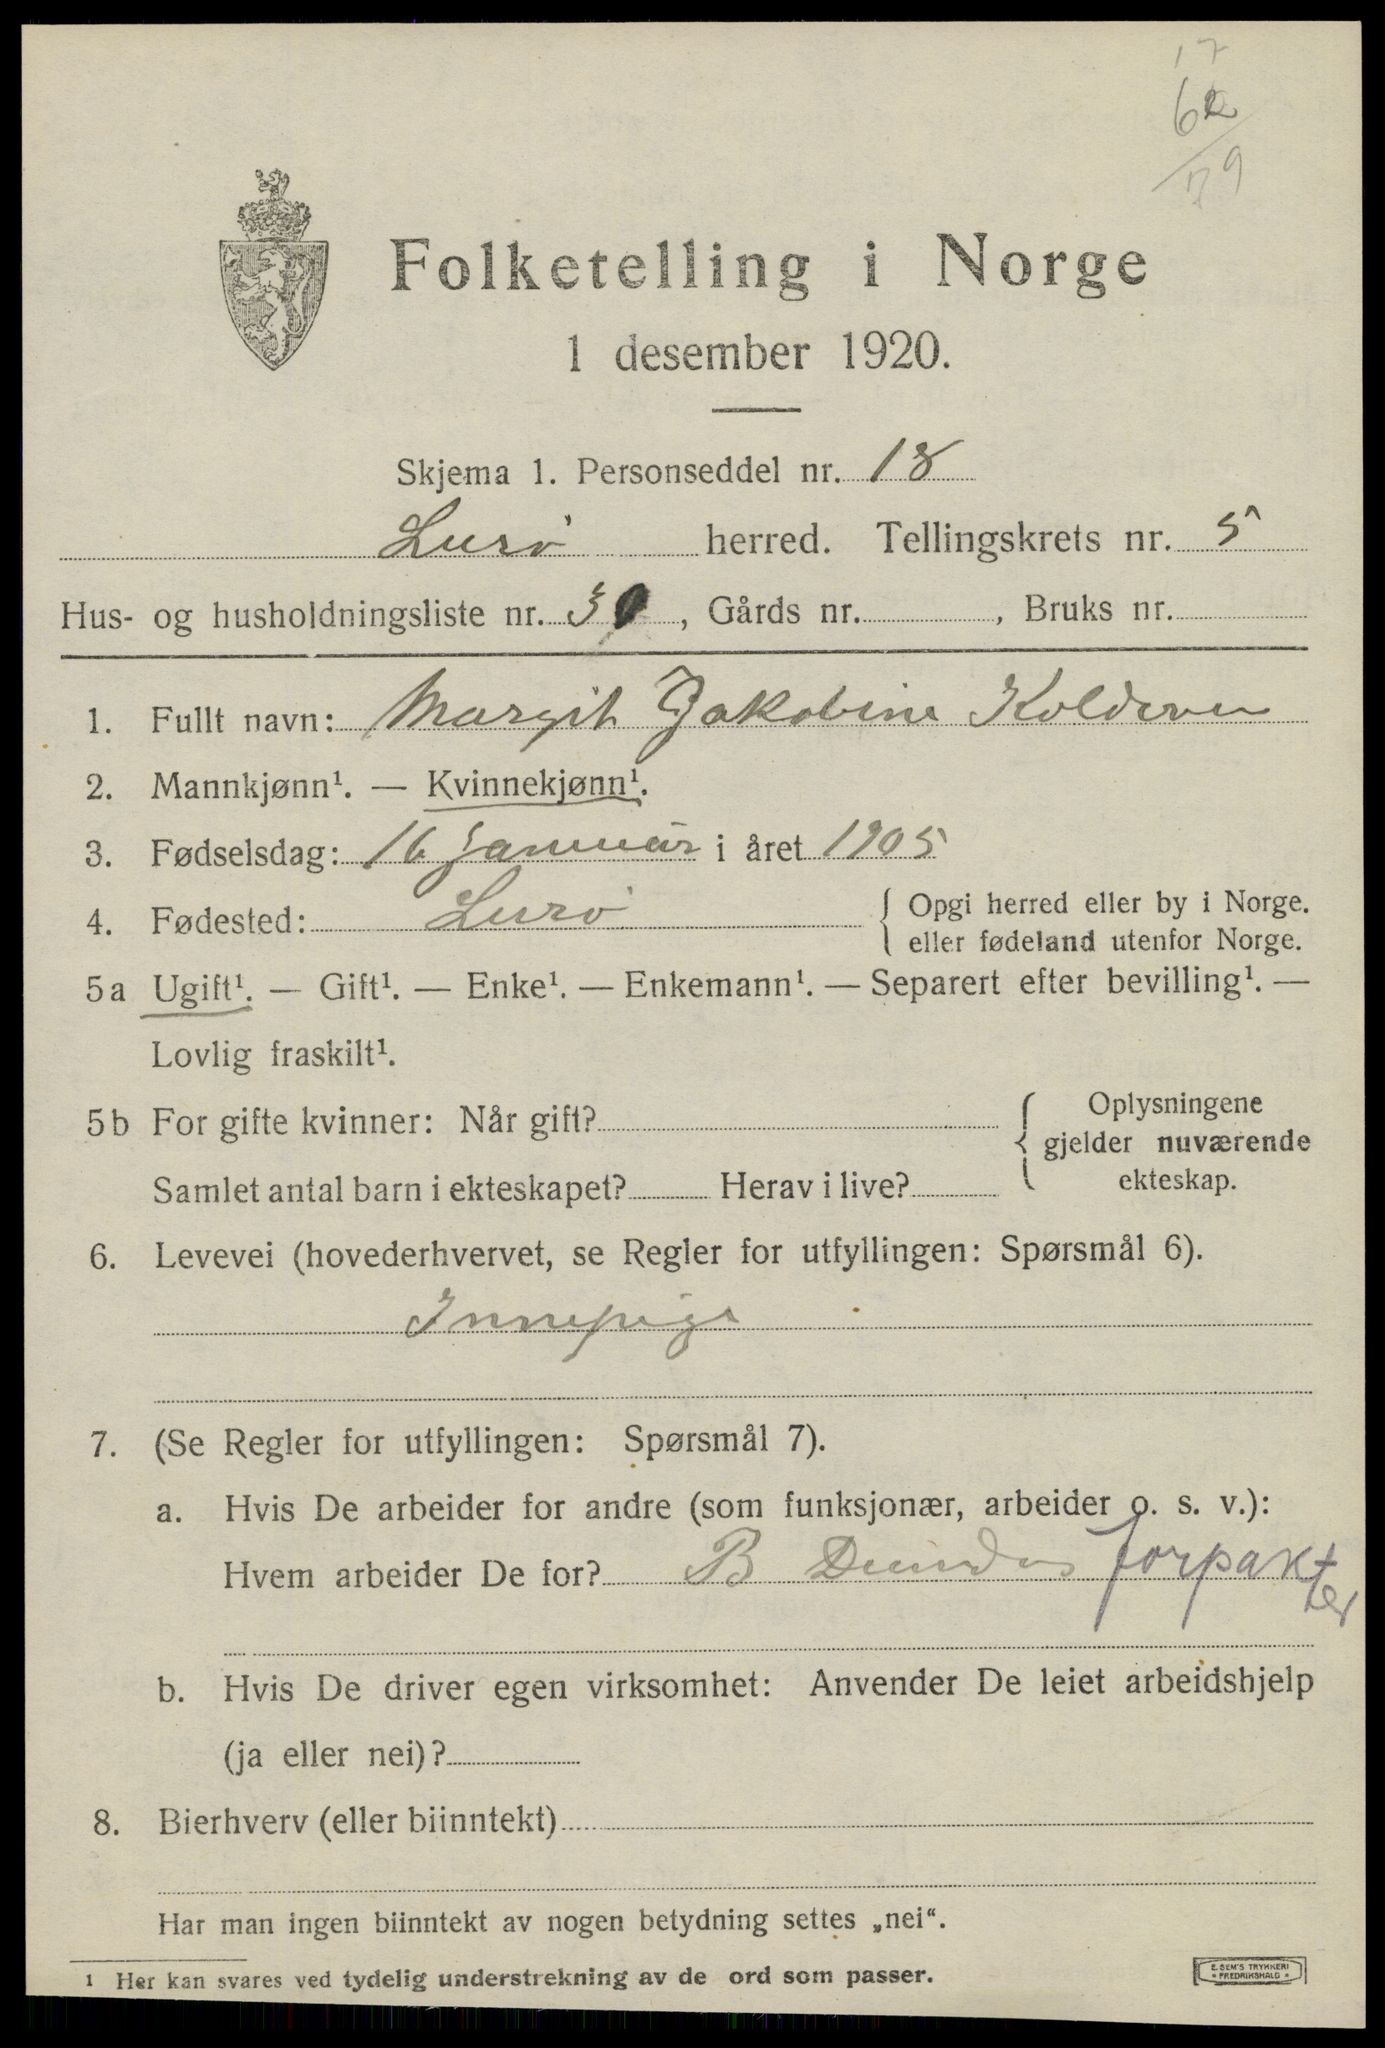 17
62
79
Folketelling i Norge
1 desember 1920.
Skjema 1. Personseddel nr. 18
Lurø herred. Tellingskrets nr. 5
Hus- og husholdningsliste nr. 3 , Gårds nr. , Bruks nr.
1. Fullt navn: Margit Jakobine Kolderen
2. Mannkjønn¹. — Kvinnekjønn¹.
3. Fødselsdag: 16 Januar i året 1905
4. Fødested: Lurø { Opgi herred eller by i Norge.
eller fødeland utenfor Norge.
5a Ugift¹. — Gift¹. — Enke¹. — Enkemann¹. — Separert efter bevilling¹. —
Lovlig fraskilt¹.
5b For gifte kvinner: Når gift? { Oplysningene
gjelder nuværende
Samlet antal barn i ekteskapet? Herav i live? ekteskap.
6. Levevei (hovederhvervet, se Regler for utfyllingen: Spørsmål 6).
Innepige
7. (Se Regler for utfyllingen: Spørsmål 7).
a. Hvis De arbeider for andre (som funksjonær, arbeider o. s. v.):
Hvem arbeider De for? B Dundas forpakter
b. Hvis De driver egen virksomhet: Anvender De leiet arbeidshjelp
(ja eller nei)?
8. Bierhverv (eller biinntekt)
Har man ingen biinntekt av nogen betydning settes „nei“.
¹ Her kan svares ved tydelig understrekning av de ord som passer.
E. SEM'S TRYKKERI
* FREDRIKSHALD *